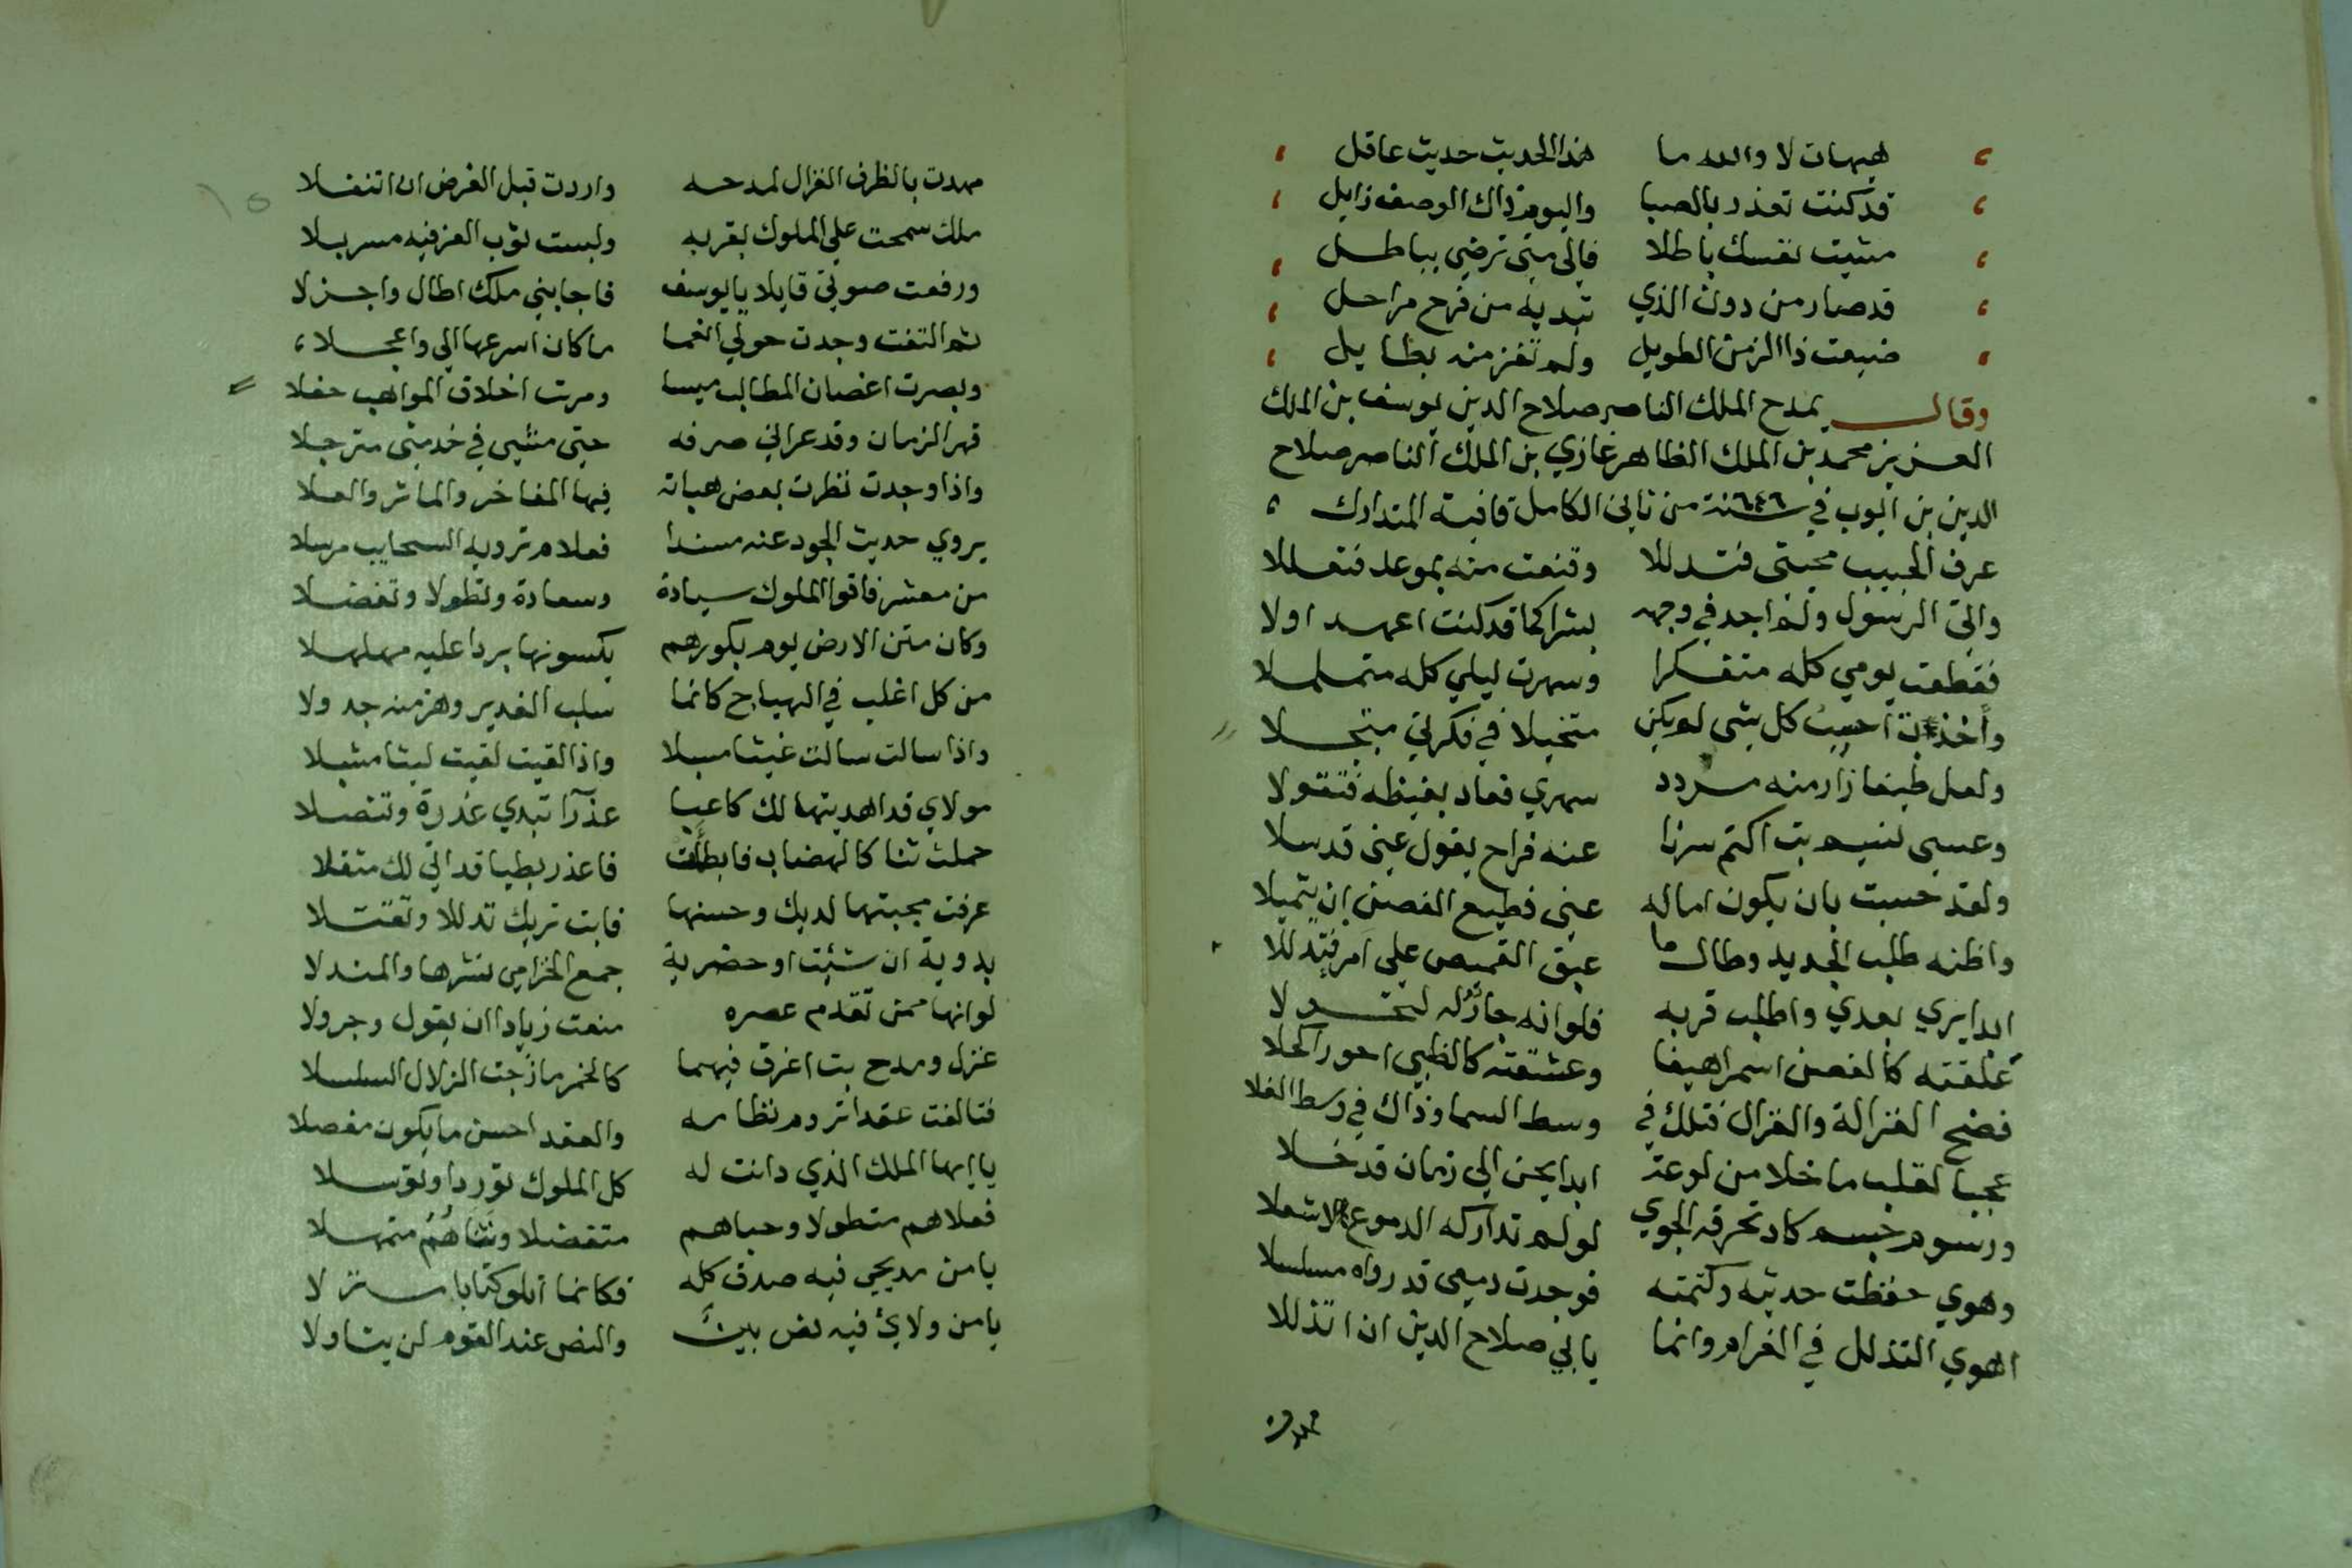 هيهات لا والله ما هذا الحديث حديث عاقل
قد كنت تعذر بالصبا واليوم ذاك الوصف زايل
منيت نفسك باطلا فالي متي ترضي بباطل
قد صار من دون الذي تبديه من فرح مراحل
ضيعت ذا الزمن الطويل ولم تفز منه بطايل
وقال يمدح الملك الناصر صلاح الدين يوسف بن الملك
العزيز محمد بن الملك الظاهر غازي بن الملك الناصر صلاح
الدين بن ايوب في سنة ٦٤٦ من ثاني الكامل قافية المتدارك
عرف الحبيب محبتي فتدللا وقنعت منه بموعد فتعللا
واتي الرسول ولم اجد في وجهه بشرا كما قد كنت اعهد اولا
فقطعت يومي كله متفكرا وسهرت ليلي كله متململا
واخذت احسب كل شي لم يكن متخيلا في فكرتي متجــلا
ولعل طيفا زار منه مردد سهري فعاد بغيظه فتقولا
وعسي نسيم بت اكتم سرنا عنه فراح يقول عني قد سلا
ولقد حسبت بان يكون اماله عني فطبع الغصن ان يتميلا
واظنه طلب الجديد وطال ما عبق القميص علي امر فتدللا
ابدا يري بعدي واطلب قربه فلو انه جار له لتحولا
علقته كالغصن اسمر اهيفا وعشقته كالظبي احور اكحلا
فضح الغزالة والغزال فتلك في وسط السما وذاك في وسط الفلا
عجبا لقلب ما خلا من لوعة ابدا يحن الي زمان قد خلا
ورسوم جسم كاد تحرقه الجوي لو لم تداركه الدموع لاشعلا
وهوي حفظت حديثه وكتمته فوجدت دمعي قد رواه مسلسلا
اهوي التذلل في الغرام وانما يابي صلاح الدين ان اتذللا
مهدت
مهدت بالظرف الغزال لمدحه واردت قبل الفرض ان اتنفلا
ملك سمحت علي الملوك بقربه ولبست ثوب العز فيه مسربلا
ورفعت صوتي قايلا يا يوسف فاجابني ملك اطال واجزلا
ثم التفت وجدت حولي انعما ما كان اسرعها الي واعجلا
وبصرت اغصان المطالب ميسا ومرت اخلاق المواهب حفلا
قهر الزمان وقد عراني صرفه حتي مشي في خدمتي مترجلا
واذا وجدت نظرت بعض هباته فيها المفاخر والماثر والعلا
يروي حديث الجود عنه مسندا فعلام ترويه السحايب مرسلا
من معشر فاقوا الملوك سيادة وسعادة وتطولا وتفضلا
وكان متن الارض يوم بكورهم يكسونها بردا عليه مهلهلا
من كل اغلب في الهياج كانما سلب الغدير وهز منه جدولا
واذا سالت سالت غيثا مسبلا واذا لقيت لقيت ليثا مشبلا
مولاي قد اهديتها لك كاعبا عذرا تبدي عذرة وتنصلا
حملت ثنا كالهضاب فابطأت فاعذر بطيا قد اتي لك مثقلا
عرفت محبتها لديك وحسنها فابت تريك تدللا وتقتلا
بدوية ان شئت او حضرية جمع الخزامي نشرها والمندلا
لو انها ممن تقدم عصره منعت زيادا ان يقول وجرولا
غزل ومدح بت اغرق فيهما كالخمر مازجت الزلال السلسلا
فتالفت عقدا تروم نظامه والعقد احسن ما يكون مفصلا
يا ايها الملك الذي دانت له كل الملوك توردا وتوسلا
فعلاهم متطولا وحباهم متفضلا وثناهم متمهلا
يا من مديحي فيه صدق كله فكانما اتلو كتابا منزلا
يا من ولائي فيه نص بين والنص عند القوم لن يتاولا